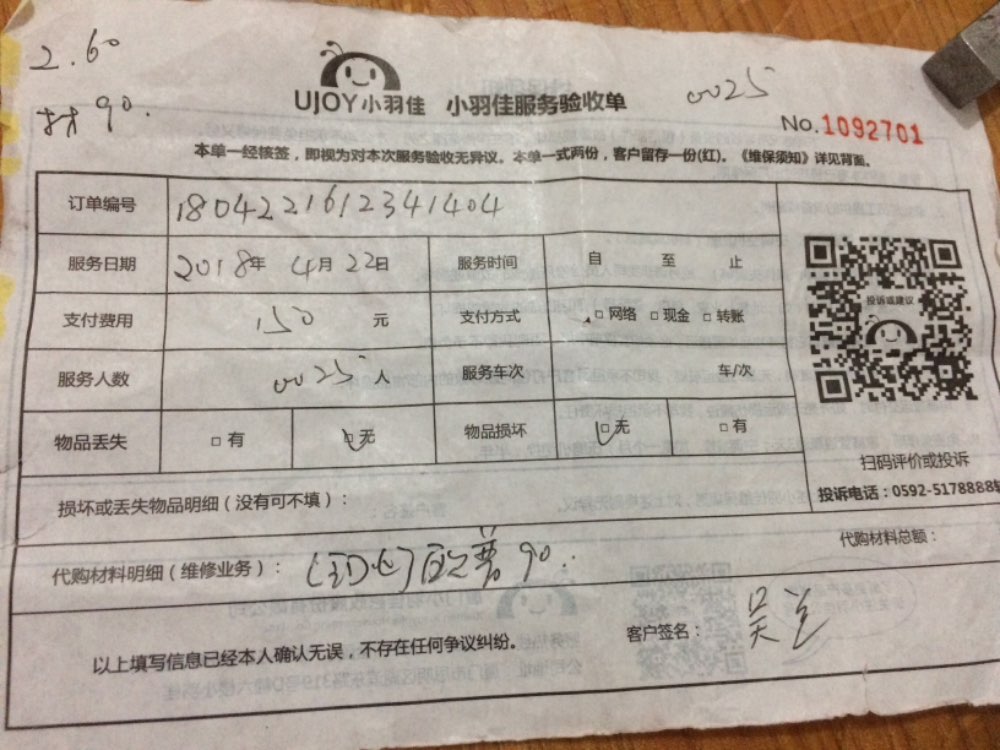 2.60
材90.
UJOY小羽佳 小羽佳服务验收单
0025
No.1092701
本单一经核签,即视为对本次服务验收无异议。本单一式两份,客户留存一份(红)。《维保须知》详见背面。
订单编号 1804221612341404
服务日期 2018年 4月 22日 服务时间 自 至 止
支付费用 150 元 支付方式 □网络 □现金 □转账
服务人数 0025 人 服务车次 车/次
物品丢失 □有 □无 物品损坏 □无 □有
投诉或建议
扫码评价或投诉
投诉电话:0592-5178888转
损坏或丢失物品明细(没有可不填):
代购材料总额:
代购材料明细(维修业务): 欧普90.
以上填写信息已经本人确认无误,不存在任何争议纠纷。
客户签名: 吴